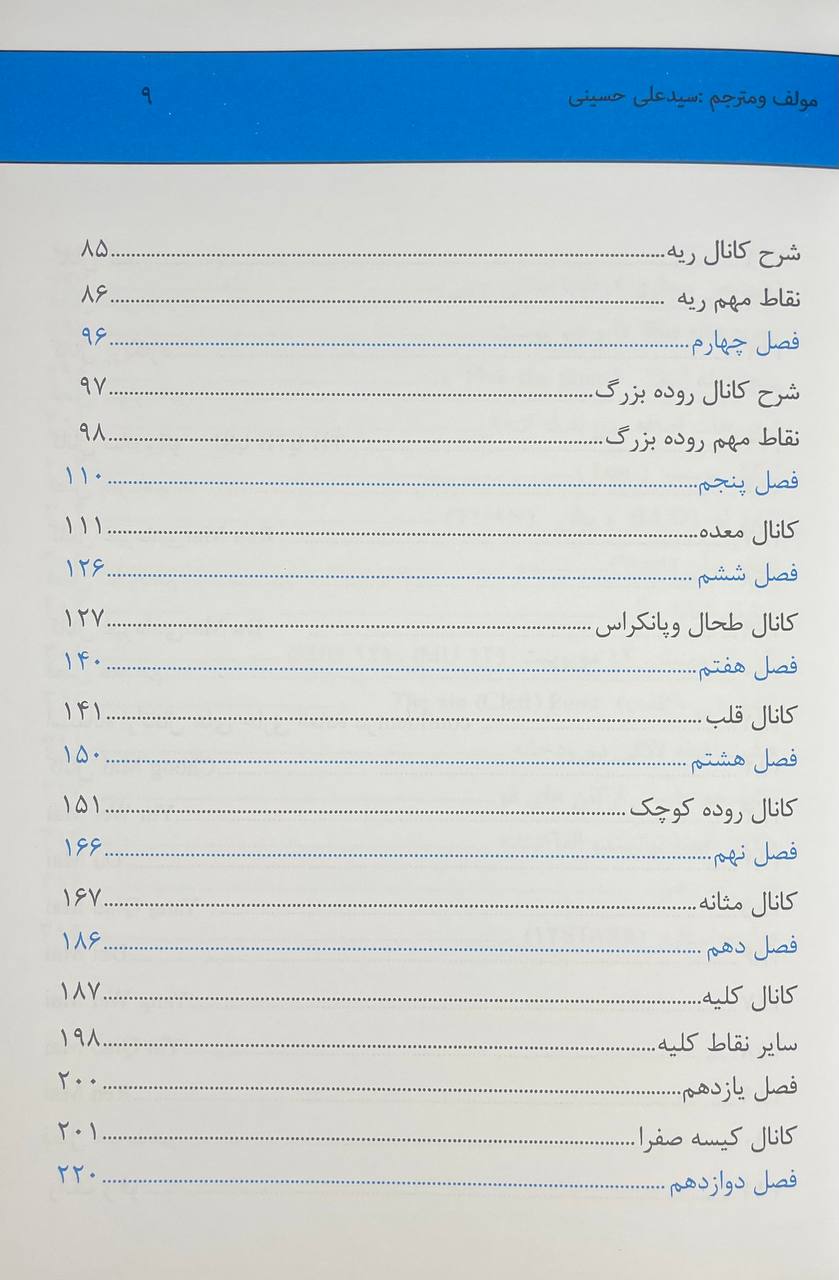 مولف ومترجم :سیدعلی حسینی ۹
شرح کانال ریه ۸۵
نقاط مهم ریه ۸۶
فصل چهارم ۹۶
شرح کانال روده بزرگ ۹۷
نقاط مهم روده بزرگ ۹۸
فصل پنجم ۱۱۰
کانال معده ۱۱۱
فصل ششم ۱۲۶
کانال طحال وپانکراس ۱۲۷
فصل هفتم ۱۴۰
کانال قلب ۱۴۱
فصل هشتم ۱۵۰
کانال روده کوچک ۱۵۱
فصل نهم ۱۶۶
کانال مثانه ۱۶۷
فصل دهم ۱۸۶
کانال کلیه ۱۸۷
سایر نقاط کلیه ۱۹۸
فصل یازدهم ۲۰۰
کانال کیسه صفرا ۲۰۱
فصل دوازدهم ۲۲۰